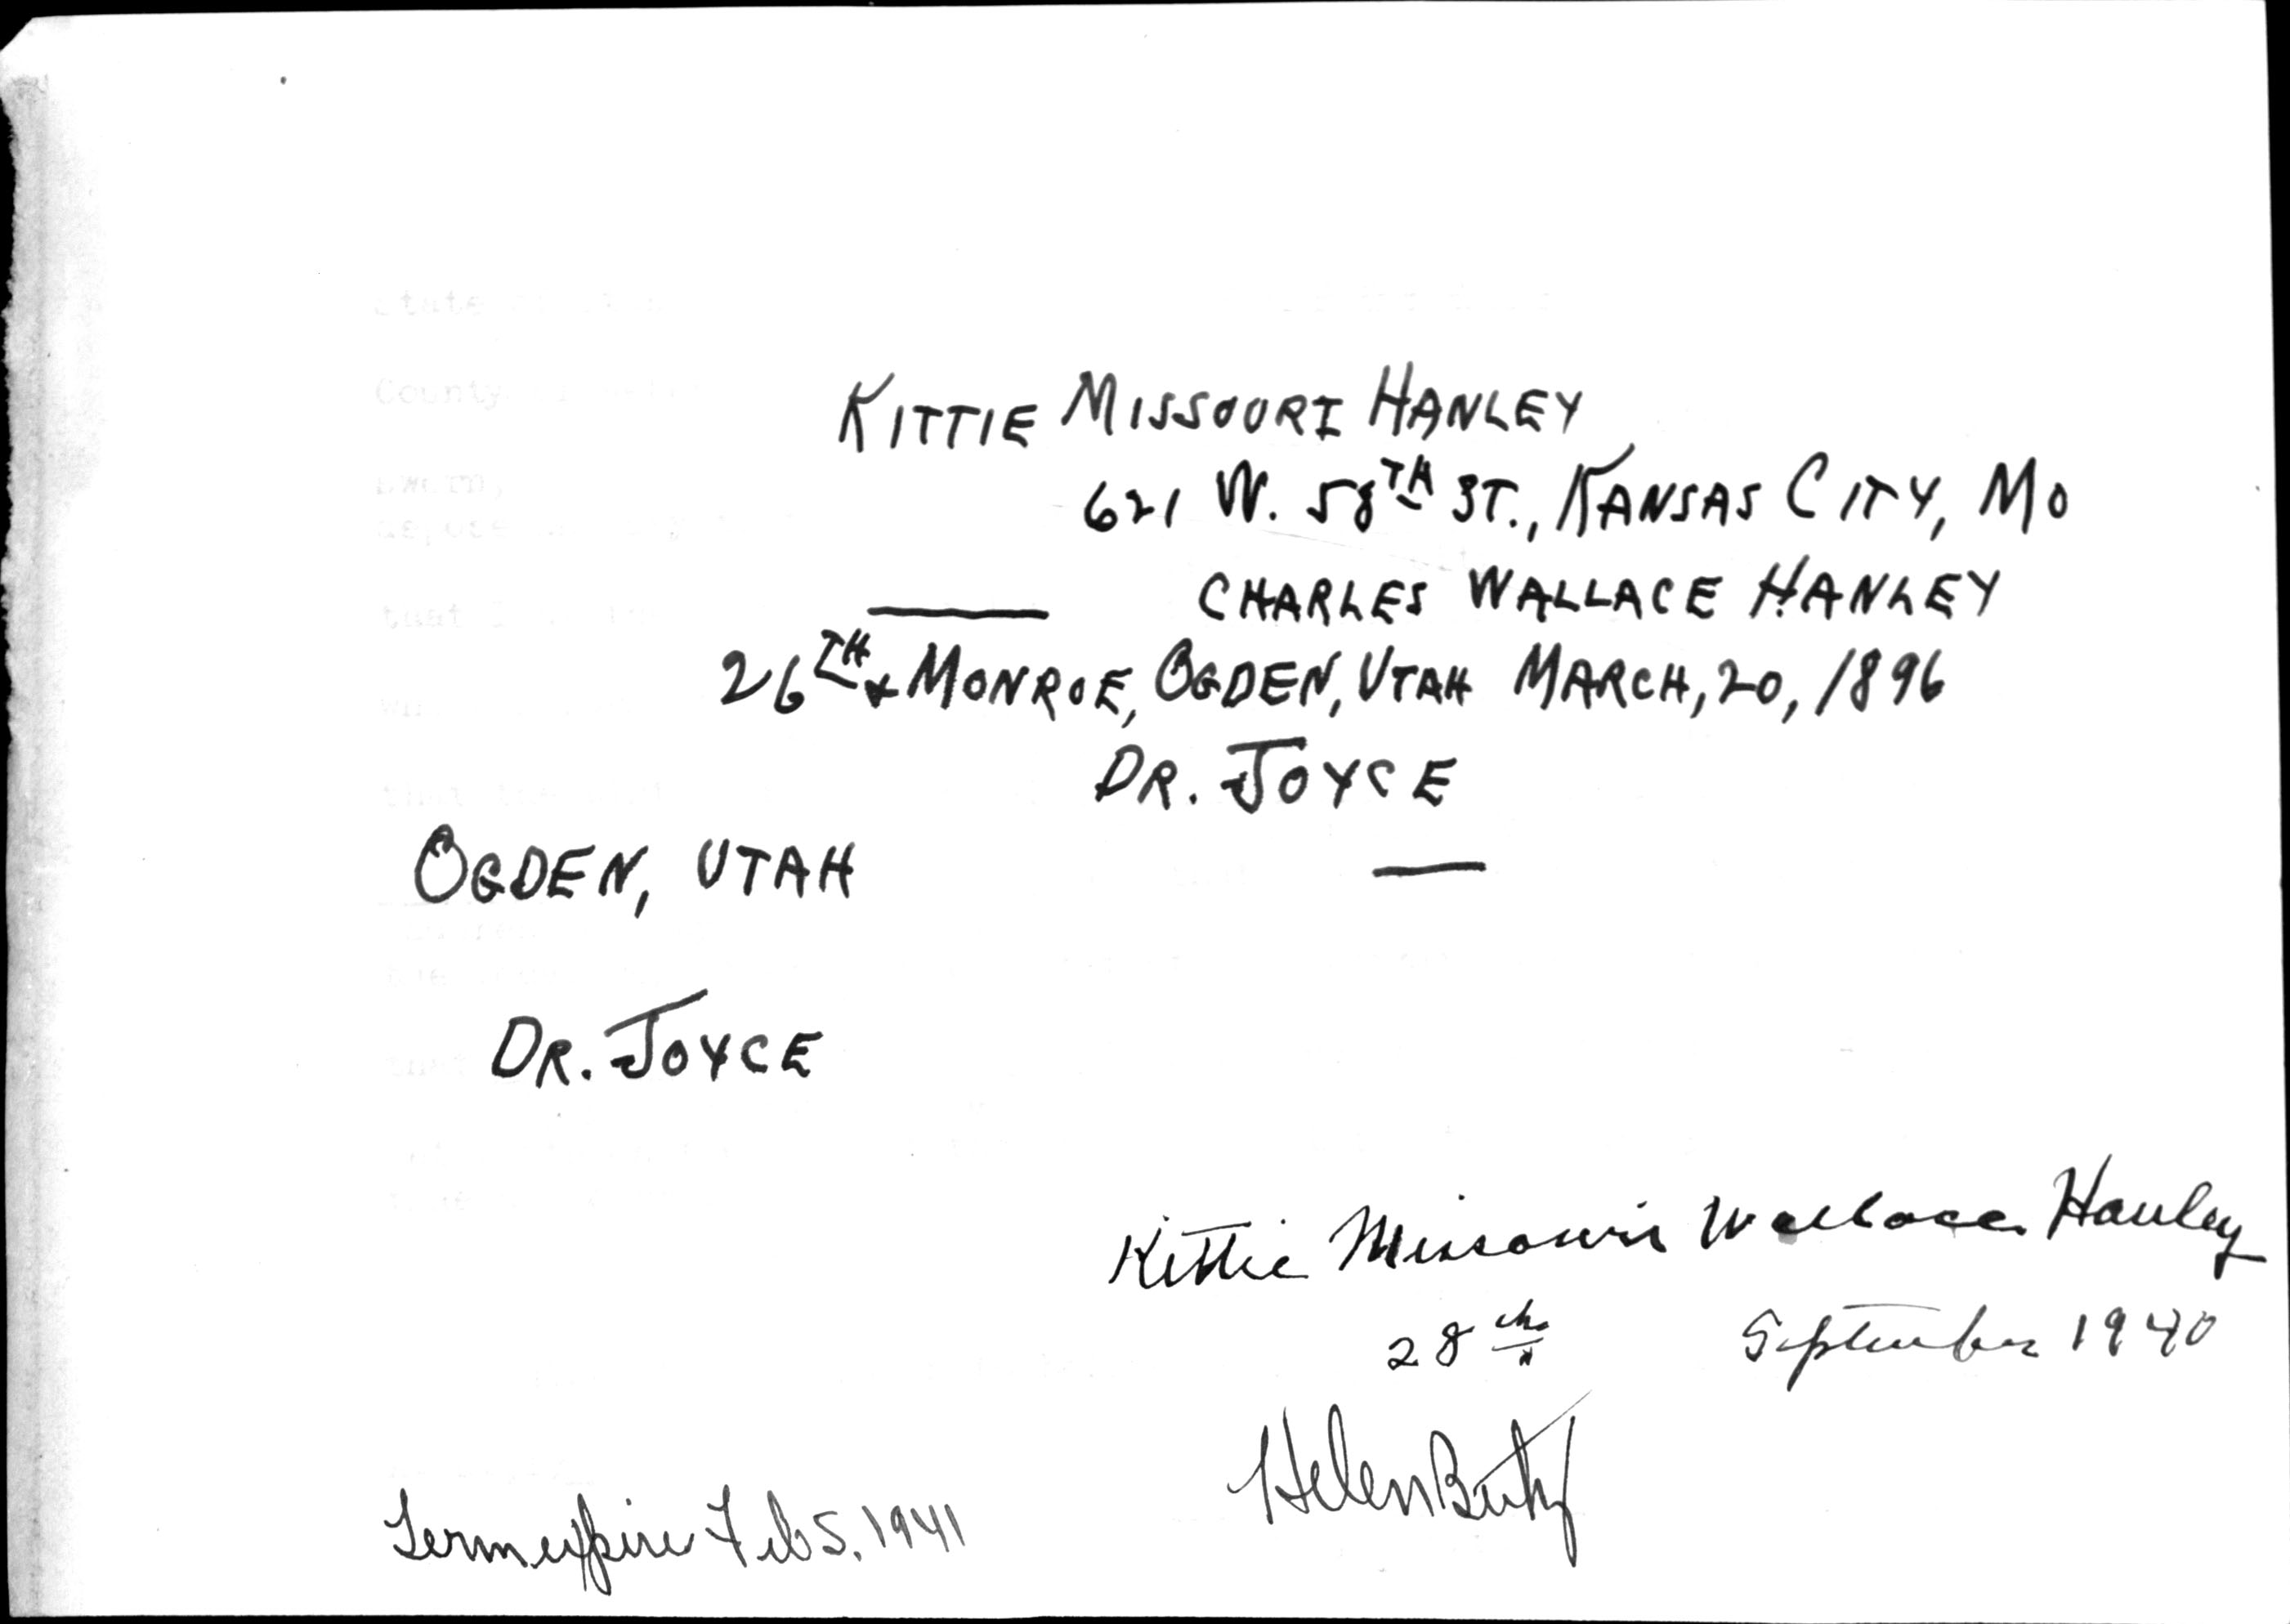 State
County
sworn,
that I
KITTIE MISSOURI HANLEY
621 W. 58TH ST., KANSAS CITY, MO
CHARLES WALLACE HANLEY
26TH & MONROE, OGDEN, UTAH MARCH, 20, 1896
DR. JOYCE
OGDEN, UTAH
DR. JOYCE
Kittie Missouri Wallace Hanley
28th September 1940
Helen
Term expire Feb 5, 1941